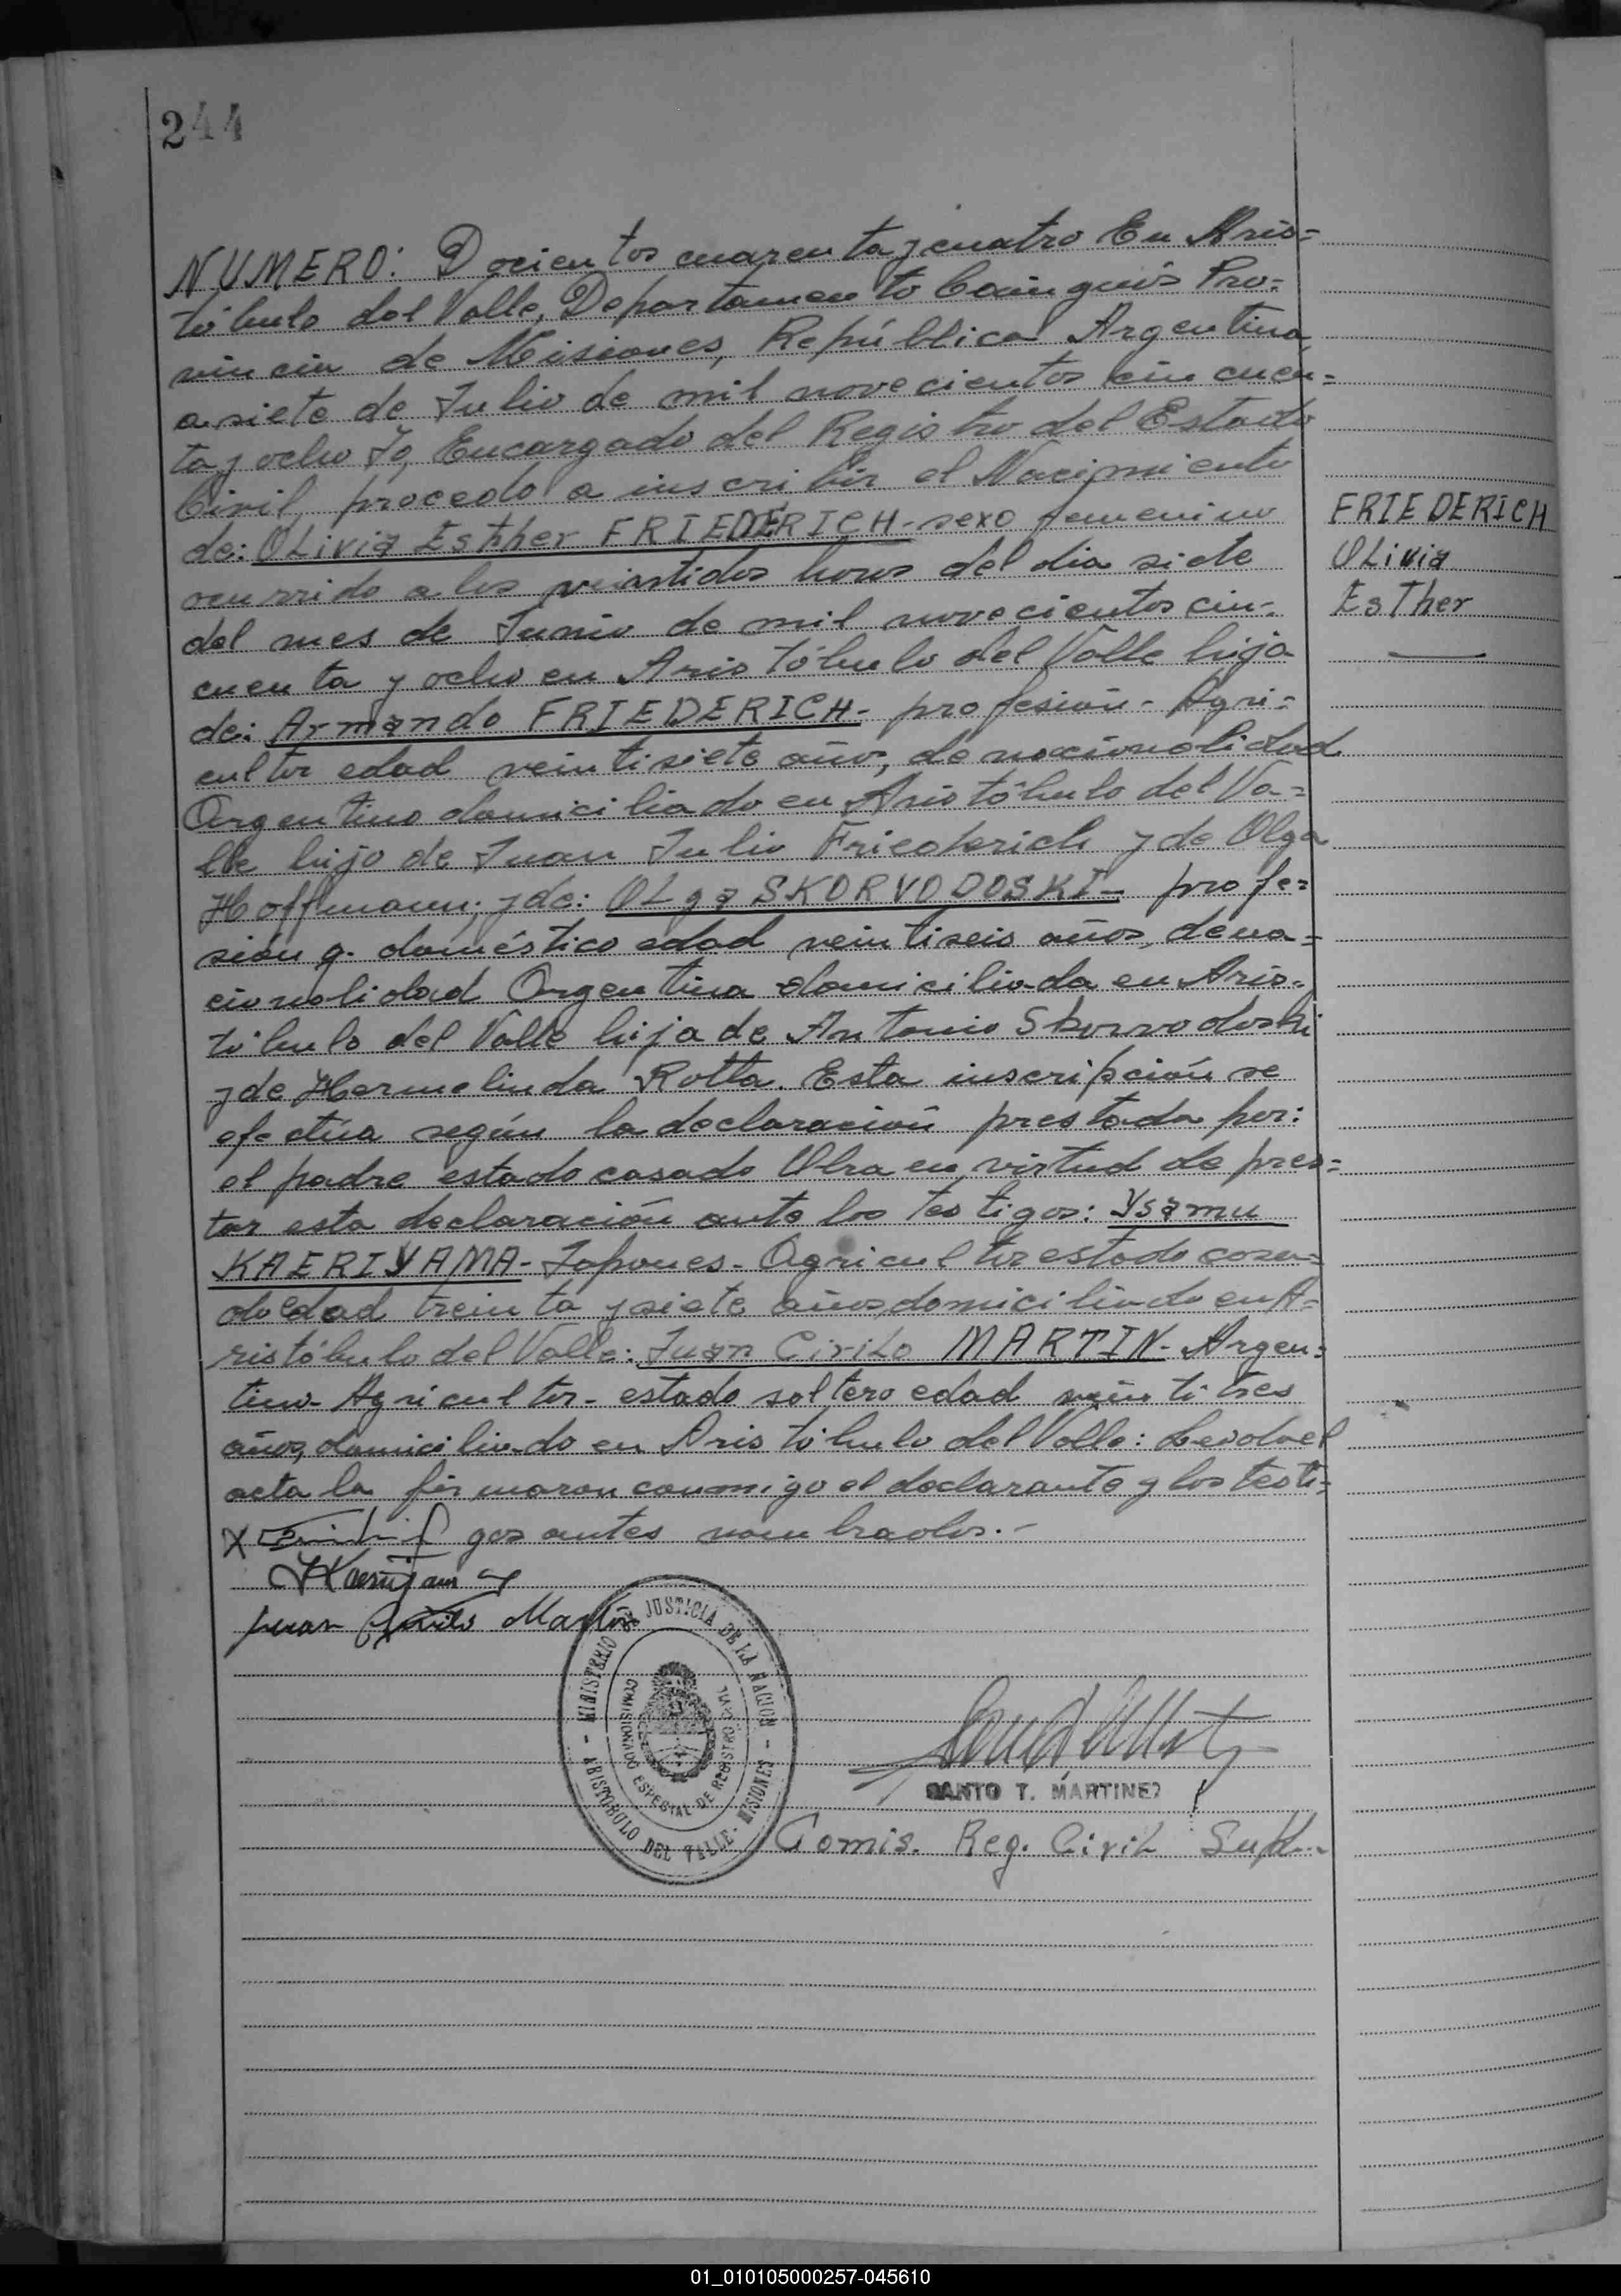 244
NUMERO: Docientos cuarenta y cuatro En Aris=
tóbulo del Valle, Departamento Cainguás Pro=
vincia de Misiones, República Argentina,
a siete de Julio de mil novecientos cincuen=
ta y ocho Yo, Encargado del Registro del Estado
Civil, procedo a inscribir el Nacimiento
de: OLivia Esther FRIEDERICH- sexo femenino
ocurrido a las veintidos horas del dia siete
del mes de Junio de mil novecientos cin-
cuenta y ocho en Aristóbulo del Valle hija
de: Armando FRIEDERICH- profesión- Agri=
cultor edad veintisiete años, de nacionalidad
Argentino domiciliado en Aristóbulo del Va=
lle hijo de Juan Julio Friederich y de Olga
Hoffmann; y de: OLga SKORVODOSKI- profe=
sión q. doméstico edad veintiseis años, de na=
cionalidad Argentina domiciliada en Aris=
tóbulo del Valle hija de Antonio Skorvodoski
y de Hermelinda Rotta. Esta inscripción se
efectúa según la declaración prestada por:
el padre estado casado Obra en virtud de pres=
tar esta declaración ante los testigos: Ysamu
KAERIYAMA- Japones- Agricultor estado casa=
do edad treinta y siete años, domiciliado en A=
ristóbulo del Valle: Juan CiriLo MARTIN- Argen=
tino- Agricultor- estado soltero edad veintitres
años, domiciliado en Aristóbulo del Valle: Leida el
acta la firmaron conmigo el declarante y los testi=
X gos antes nombrados.-
Juan Cirilo Martin
MINISTERIO DE JUSTICIA DE LA NACION
COMISIONADO ESPECIAL DE REGISTRO CIVIL
ARISTOBULO DEL VALLE - MISIONES
SANTO T. MARTINEZ
Comis. Reg. CiviL Supl.
FRIEDERICH
OLivia
Esther
01_010105000257-045610